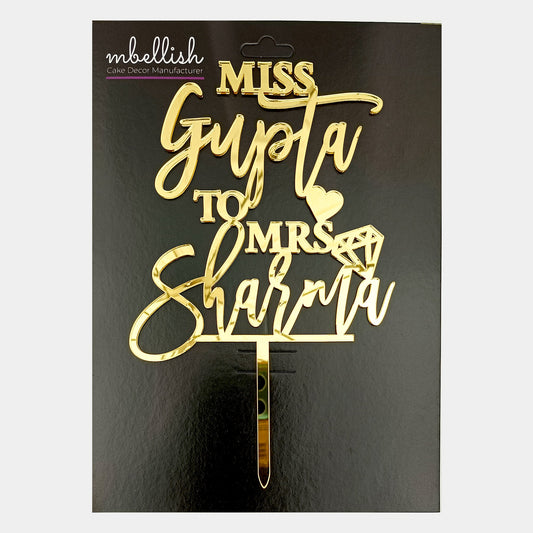 mbellish
Cake Decor Manufacturer
MISS
Gupta
TO
MRS
Sharma